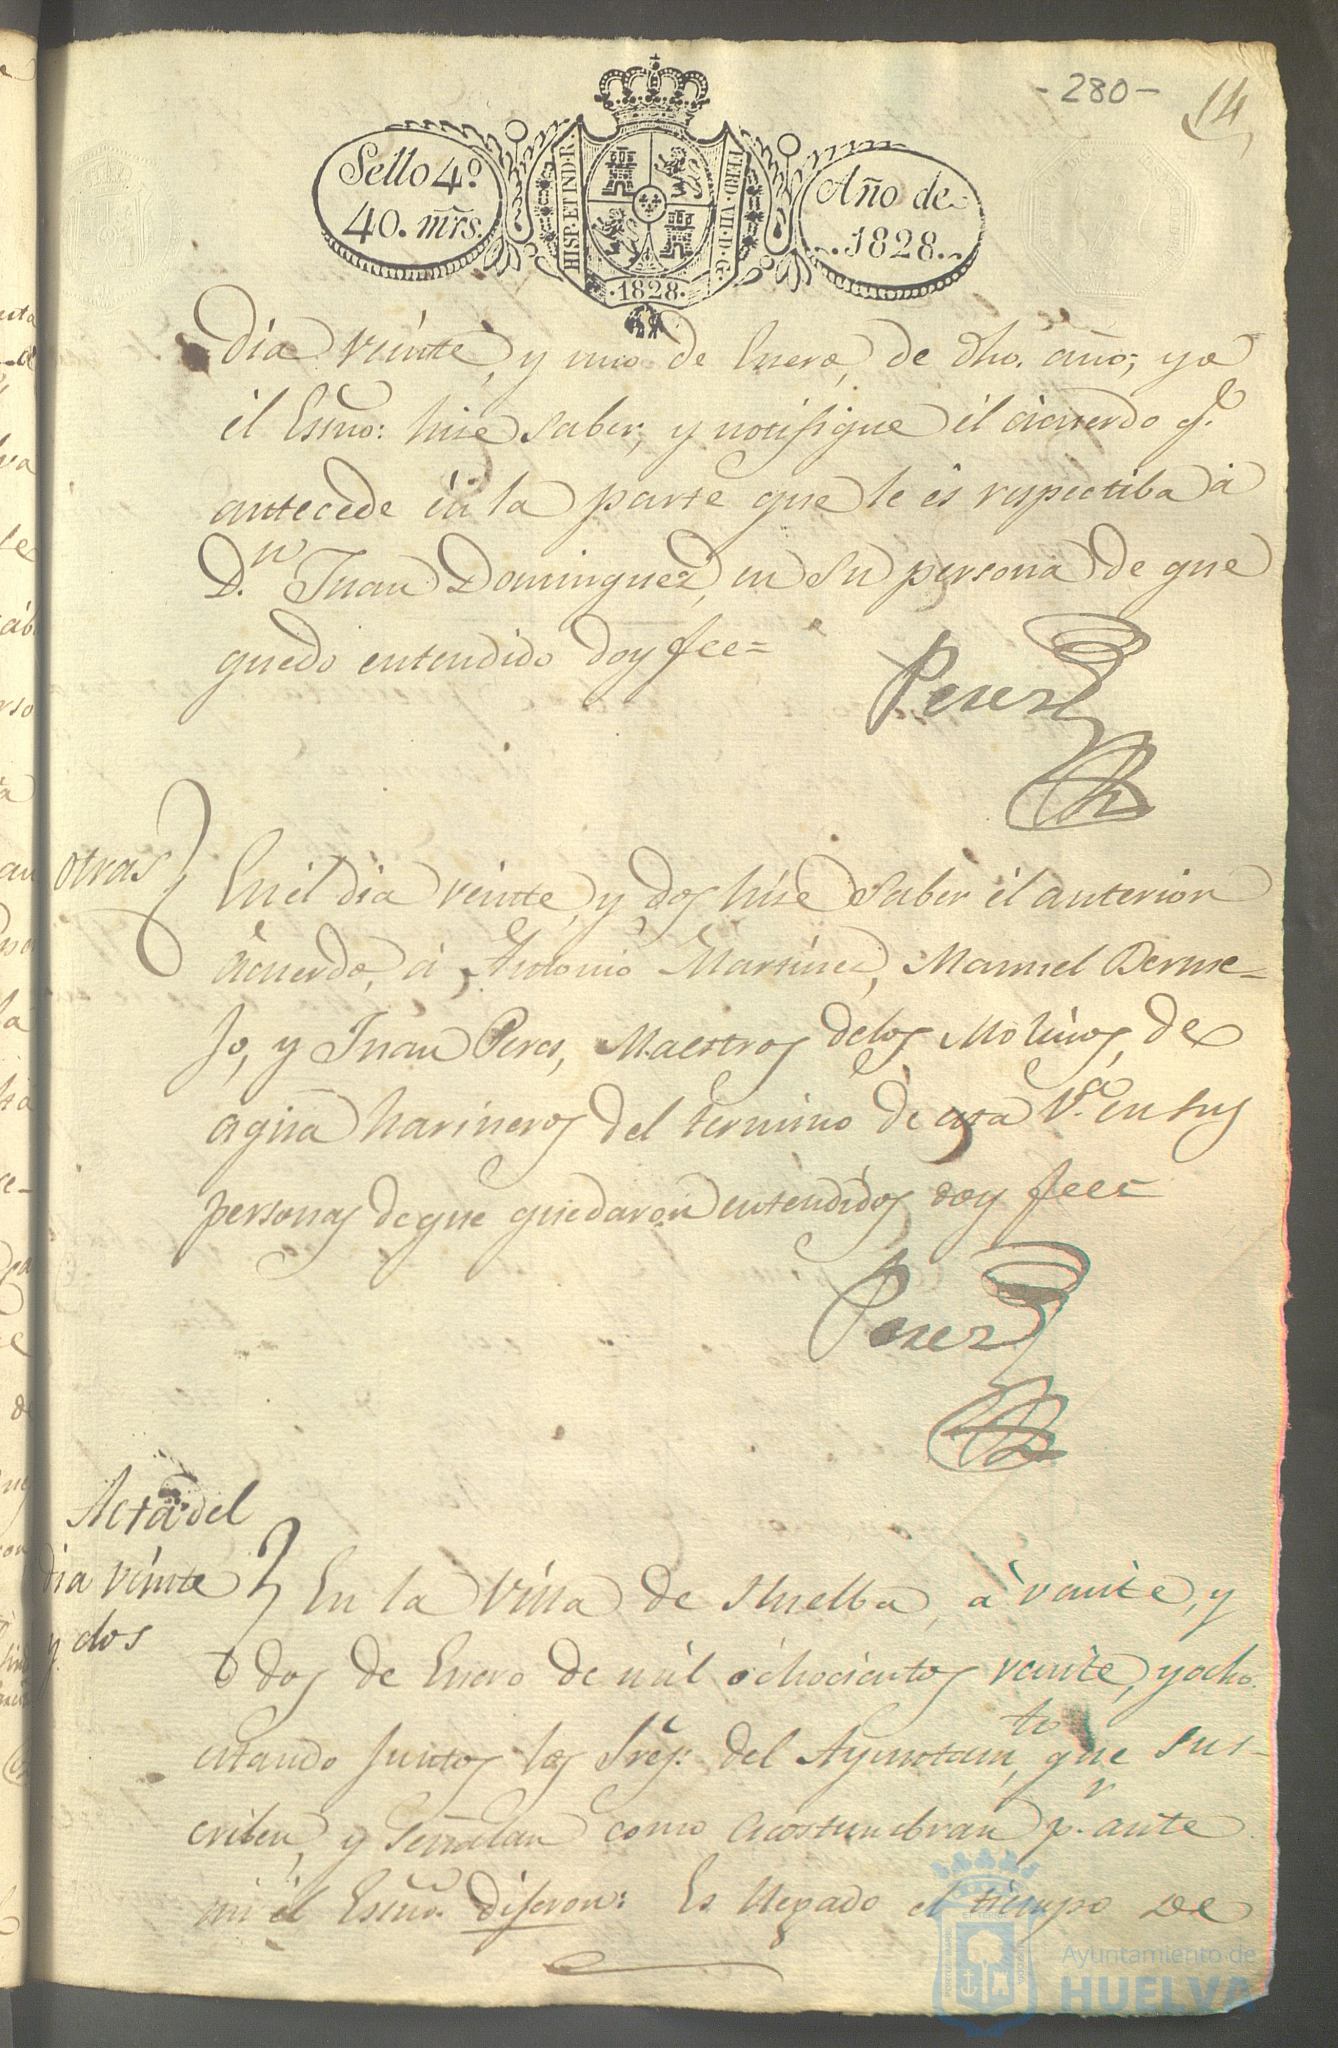 - 280 -
14
Sello 4.º
40. mrs.
HISP. ET IND. R.
FERD. VII. D. G.
· 1828 ·
Año de
1828.
Dia veinte, y uno de Enero, de dho. año; yo
él Essno: hise saber, y notifique él acuerdo q.e
antecede én la parte que le és respectiba á
D.n Juan Dominguez, en su persona de que
quedo entendido doy fee=
Perez
otras
En él dia veinte, y dos hise saber él anterior
ácuerdo, á Antonio Martinez, Manuel Berme=
Jo, y Juan Peres, Maestros delos Molinos, de
agua harineros del termino de esta V.a en sus
personas de que quedaron entendidos doy fee=
Perez
Acta del
dia veinte
y dos
En la Villa de Huelba, á veinte, y
dos de Enero de mil ochocientos veinte, y ocho.
estando Juntos los Sres: del Ayuntam.to que sus-
criben, y señalan como acostumbran p.r ante
mi él Essno. diferon: Es llegado el tiempo de
Ayuntamiento de
HUELVA